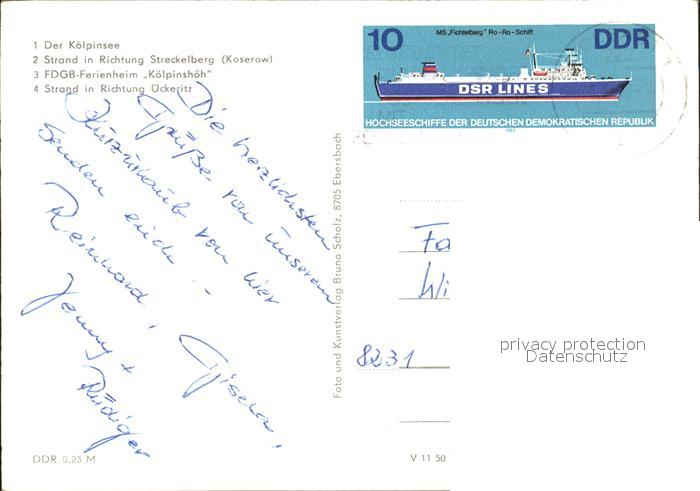 1 Der Kölpinsee
2 Strand in Richtung Streckelberg (Koserow)
3 FDGB-Ferienheim „Kölpinshöh"
4 Strand in Richtung Ückeritz
MS „Fichtelberg" Ro-Ro-Schiff
10 DDR
DSR LINES
HOCHSEESCHIFFE DER DEUTSCHEN DEMOKRATISCHEN REPUBLIK
1982
Die herzlichsten
Grüße von unserem
Kurzurlaub von hier
senden euch
Reinhard, Gisela,
Jenny +
Rüdiger
Foto und Kunstverlag Bruno Scholz, 8705 Ebersbach
Fa
Wi
8231
privacy protection
Datenschutz
DDR 0,25 M
V 11 50